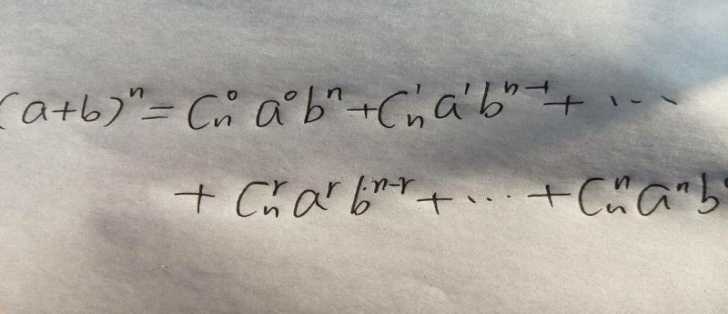 (a+b)ⁿ = Cₙ⁰ a⁰ bⁿ + Cₙ¹ a¹ bⁿ⁻¹ + ···
+ Cₙʳ aʳ bⁿ⁻ʳ + ··· + Cₙⁿ aⁿ b